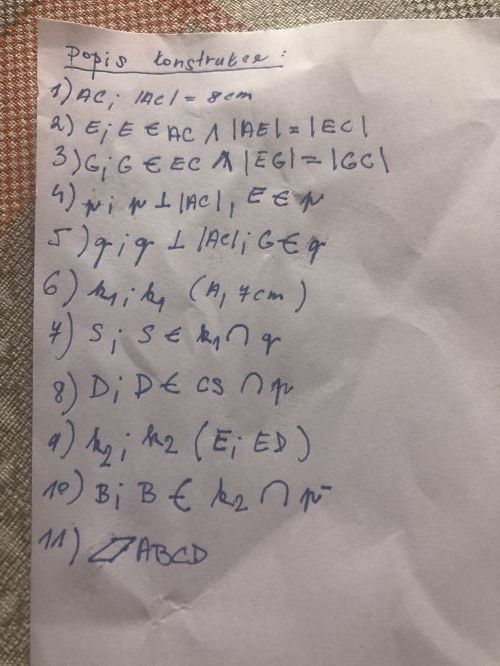 Popis konstrukce:
1) AC; |AC| = 8cm
2) E; E ∈ AC ∧ |AE| = |EC|
3) G; G ∈ EC ∧ |EG| = |GC|
4) p; p ⊥ |AC|, E ∈ p
5) q; q ⊥ |AC|; G ∈ q
6) k1; k1 (A, 7cm)
7) S; S ∈ k1 ∩ q
8) D; D ∈ CS ∩ p
9) k2; k2 (E; ED)
10) B; B ∈ k2 ∩ p
11) ▱ABCD